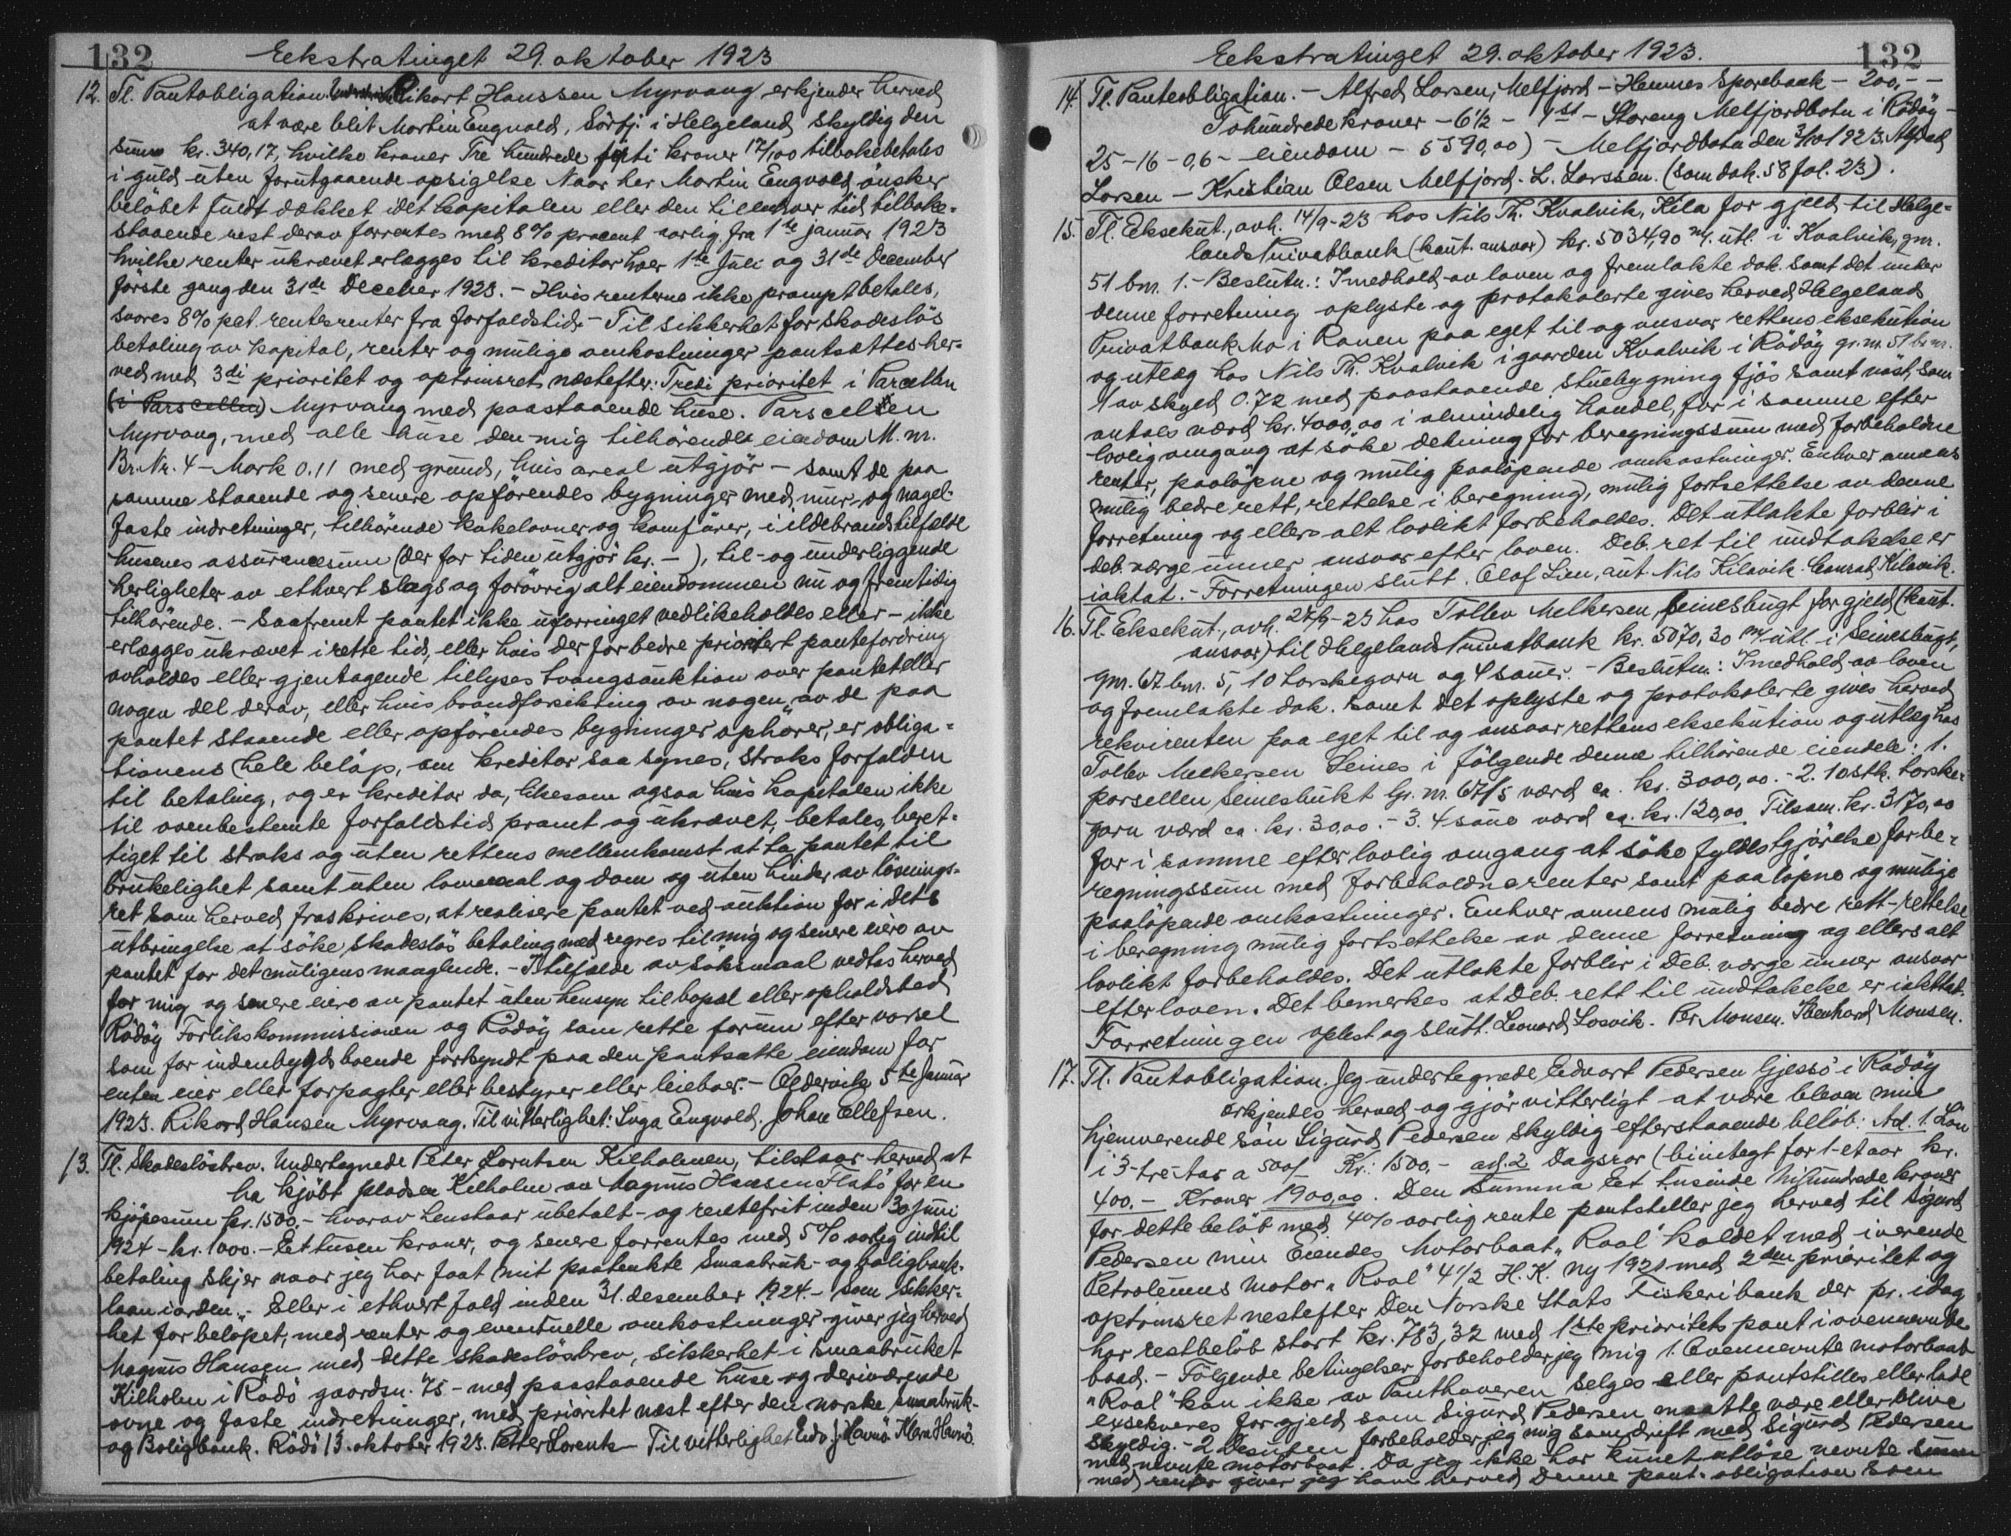 132
Eekstratinget 29. oktober 1923
12. Tl. Pantobligation. Rikort Hanssen Myrvang erkjender herved
at være blit Martin Engvold, Sörfj. i Helgeland skyldig den
sum kr. 340,17, hvilke kroner Tre hundrede förti kroner 17/100 tilbakebetales
i guld uten forutgaaende opsigelse Naar her Martin Engvold önsker
belöbet fuldt dækket idet kapitalen eller den til enhver tid tilbake-
staaende rest derav forrentes med 8% procent aarlig fra 1ste januar 1923
hvilke renter ukrævet erlægges til kreditor hver 1ste Juli og 31de December
förste gang den 31de Deceber 1923. - Hvis renterne ikke prompt betales,
svares 8% pct. rentesrenter fra forfaldstid. - Til sikkerhet for skadeslös
betaling av kapital, renter og mulige omkostninger pantsættes her-
ved med 3di prioritet og optrinsret næstefter: Tredi prioritet i Parcellen
(i Parscellen) Myrvang med paastaaende huse. Parscellen
Myrvang, med alle huse den mig tilhörende eiendom M. nr.
Br. Nr. 4 - Mark 0.11 med grund, hvis areal utgjör - samt de paa
samme staaende og senere opförendes bygninger med mur- og nagel-
faste indretninger, tilhörende kakelovner og komfürer, i ildebrandstilfælde
husenes assurancesum (der for tiden utgjör kr. - ), til- og underliggende
herligheter av ethvert slags og forövrig alt eiendommen nu og fremtidig
tilhörende. - Saafremt pantet ikke uforringet vedlikeholdes eller - ikke
erlægges ukrævet i rette tid, eller hvis der for bedre prioritert pantefordring
avholdes eller gjentagende tillyses tvangsauktion over pantet eller
nogen del derav, eller hvis brandforsikring av nogen av de paa
pantet staaende eller opförendes bygninger ophörer, er obliga-
tionens hele beløp, om kreditor saa synes, straks forfalden
til betaling, og er kreditor da, likesom ogsaa hvis kapitalen ikke
til ovenbestemte forfaldstid promt og ukrævet, betales, beret-
tiget til straks og uten rettens mellemkomst at ta pantet til
brukelighet samt uten lovmaal og dom og uten hinder av lösnings-
ret som herved fraskrives, at realisere pantet ved auktion for i dets
utbringelse at söke skadeslös betaling med regres til mig og senere eiere av
pantet for det muligens manglende. - I tilfælde av söksmaal vedtas herved
for mig og senere eiere av pantet uten hensyn til bopæl eller opholdsted
Rödöy Forlikskommissionen og Rödöy som rette forum efter varsel
som for indenbygds boende forkyndt paa den pantsatte eiendom for
enten eier eller forpagter eller bestyrer eller leieboer. - Aldervik 5te Januar
1923. Rikord Hansen Myrvang. Til vitterlighet: Inga Engvold. Johan Ellefsen.
13. Tl. Skadeslösbrev. Undertegnede Peter Lorntsen Kilholmen, tilstaar herved at
ha kjöbt pladsen Kilholm av Magnus Hansen Flatö for en
kjöpesum kr. 1500.- hvorav henstaar ubetalt - og rentefrit inden 30 juni
1924 - kr. 1000. - Et tusen kroner, og senere forrentes med 5% aarlig indtil
betaling skjer naar jeg har faat mit paatenkte Smaabruk- og boligbank-
laan i orden. - Eller i ethvert fald inden 31. desember 1924 - som sikker-
het for belöpet, med renter og eventuelle omkostninger giver jeg herved
Magnus Hansen med dette skadeslösbrev, sikkerhet i smaabruket
Kilholm i Rödö gaardsn. 75 - med paastaaende huse og deriværende
ovne og faste indretninger, med prioritet næst efter den norske smaabruk-
og Boligbank. Rödö 13. oktober 1923. Petter Lorents - Til vitterlighet Edv. J. Havnö. Klara Havnö.
Eekstratinget 29. oktober 1923.
132
14. Tl. Panteobligation. - Alfred Larsen, Melfjord - Hemnes Sparebank - 200,- -
Tohundrede kroner - 6½ - 1st - Storeng Melfjordbotn i Rödöy -
25 - 16 - 0,6 - eiendom - 5590,00) - Melfjordbotn den 3/10 1923. Alfred
Larsen - Kristian Olsen Melfjord. L. Larssen. (som dok. 58 fol. 23).
15. Tl. Eksekut., avh. 14/9-23 hos Nils Th. Kvalvik, Kila for gjeld til Helge-
lands Privatbank (kaut. ansvar) kr. 5034,90 m/. utl. i Kvalvik, gnr.
51 bnr. 1. - Beslutn.: I medhold av loven og fremlakte dok. samt det under
denne forretning oplyste og protokolerte gives herved Helgeland
Privatbank Mo i Ranen paa eget til og ansvar rettens eksekution
og utlæg hos Nils Th. Kvalvik i gaarden Kvalvik i Rödöy gr. nr. 51 br. nr.
1 av skyld 0.72 med paastaaende stuebygning fjös samt nöst, som
antas værd kr. 4000,00 i almindelig handel, for i samme efter
lovlig omgang at söke dekning for beregningssum med forbeholdne
renter, paalöpne og mulig paalöpende omkostninger. Enhver annens
mulig bedre rett, rettelse i beregning, mulig fortsettelse av denne
forretning og ellers alt lovlikt forbeholdes. Det utlakte forblir i
deb. værge under ansvar efter loven. Deb. ret til undtakelse er
iaktat. - Forretningen slutt. Olaf Lien, aut. Nils Kilavik. Conrad Kilavik.
16. Tl. Eksekut., avh. 27/9-23 hos Tollev Melkersen, Seinesbugt for gjeld (kaut.
ansvar) til Helgelands Privatbank kr. 5070,30 m/ utl. i Seinesbugt,
gnr. 67 bnr. 5, 10 torskegarn og 4 sauer. - Beslutn.: I medhold av loven
og fremlakte dok. samt det oplyste og protokolerte gives herved
rekvirenten paa eget til og ansvar rettens eksekution og utlæg hos
Tollev Melkersen Seines i fölgende denne tilhörende eiendele: 1.
parsellen Seinesbukt Gr. nr. 67/5 værd ca. kr. 3000,00. - 2. 10 stk. torske-
garn værd ca. kr. 30,00. - 3. 4 saue værd ca. kr. 120,00. Tilsam. kr. 3170,00
for i samme efter lovlig omgang at söke fyldestgjörelse for be-
regningssum med forbeholdne renter samt paaløpne og mulige
paalöpende omkostninger. Enhver annens mulig bedre rett - rettelse
i beregning mulig fortsettelse av denne forretning og ellers alt
lovlikt forbeholdes. Det utlakte forblir i Deb. værge under ansvar
efter loven. Det bemerkes at Deb. rett til undtakelse er iakttat.
Forretningen oplest og slutt. Leonard Losvik. Per Monsen. Bernhard Monsen.
17. Tl. Pantobligation. Jeg undertegnede Edvart Pedersen Gjessö i Rödöy
erkjendes herved og gjör vitterligt at være bleven min
hjemværende sön Sigurd Pedersen skyldig efterstaaende belöb: Ad. 1. Lön
i 3-tre aar a 500/ Kr: 1500,- ad. 2 Dagsror (binitegt for 1-et aar kr.
400.- Kroner 1900,00. Den summa Et tusinde Nihundrede kroner
for dette belöb med 4% aarlig rente pantsteller jeg herved til Sigurd
Pedersen min Eiendes Motorbaat „Roal“ kaldet med iverende
Petroleums motor „Roal“ 4½ H.K. ny 1921 med 2den prioritet og
optrinsret nestefter Den Norske Stats Fiskeribank der pr. idag
har restbelöb stort kr. 783,32 med 1ste prioritets pant i ovennevnte
baad. - Fölgende betingelser forbeholder jeg mig 1. Ovennevnte motorbaat
„Roal“ kan ikke av Panthaveren selges eller pantstilles eller lade
exsekveres for gjeld som Sigurd Pedersen maatte være eller blive
skyldig. - 2 Desuten forbeholder jeg mig samdrift med Sigurd Pedersen
med nevnte motorbaat. Da jeg ikke har kunet utlöse nevnte sum
med renter giver jeg ham herved Denne pant-obligation som